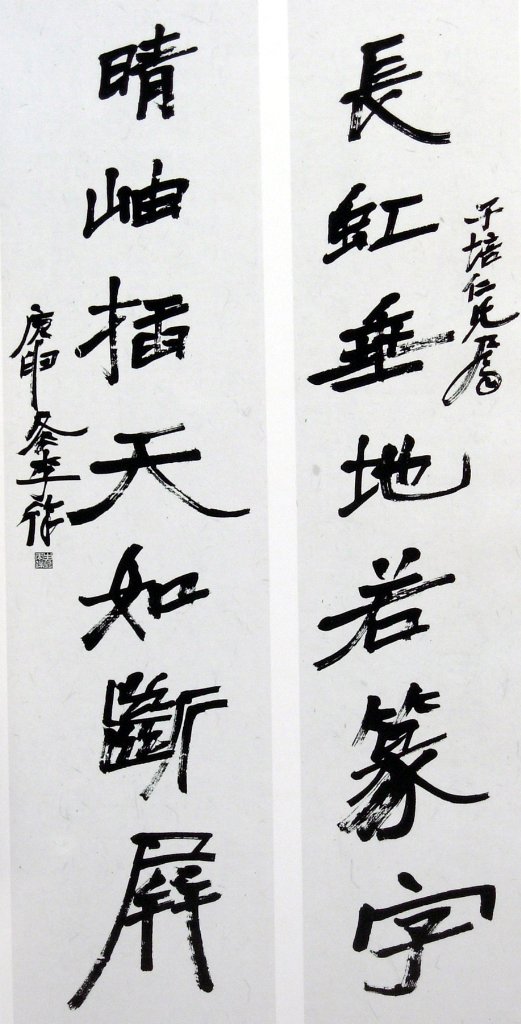 子培仁兄
長虹垂地若篆字
晴岫插天如斷屏
庚申冬